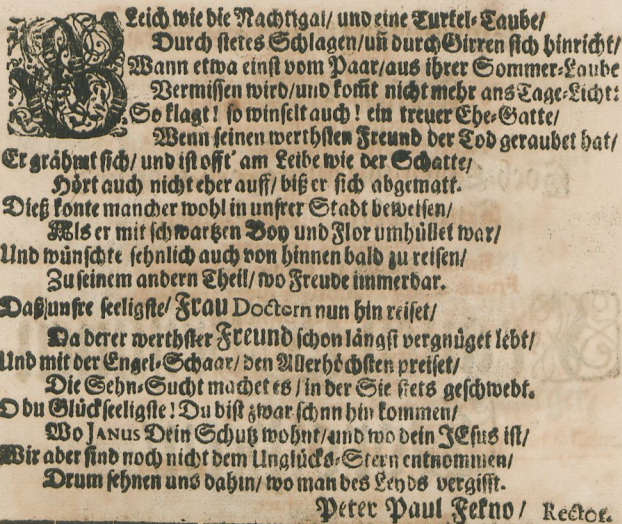 GLeich wie die Nachtigal/ und eine Turtel-Taube/
Durch stetes Schlagen/ uñ durch Girren sich hinricht/
Wann etwa einst vom Paar/ aus ihrer Sommer-Laube
Vermissen wird/ und kom̃t nicht mehr ans Tage-Licht:
So klagt! so winselt auch! ein treuer Ehe-Gatte/
Wenn seinen werthsten Freund der Tod geraubet hat/
Er grähmt sich/ und ist offt am Leibe wie der Schatte/
Hört auch nicht eher auff/ biß er sich abgematt.
Dieß konte mancher wohl in unsrer Stadt beweisen/
Als er mit schwartzen Boy und Flor umhüllet war/
Und wünschte sehnlich auch von hinnen bald zu reisen/
Zu seinem andern Theil/ wo Freude immerdar.
Daß unsre seeligste/ Frau Doctorn nun hin reiset/
Da derer werthster Freund schon längst vergnüget lebt/
Und mit der Engel-Schaar/ den Allerhöchsten preiset/
Die Sehn-Sucht machet es/ in der Sie stets geschwebt.
O du Glückseeligste! Du bist zwar schon hin kommen/
Wo JANUS Dein Schutz wohnt/ und wo dein JEsus ist/
Wir aber sind noch nicht dem Unglücks-Stern entnommen/
Drum sehnen uns dahin/ wo man des Leyds vergisst.
Peter Paul Fekno/ Rector.